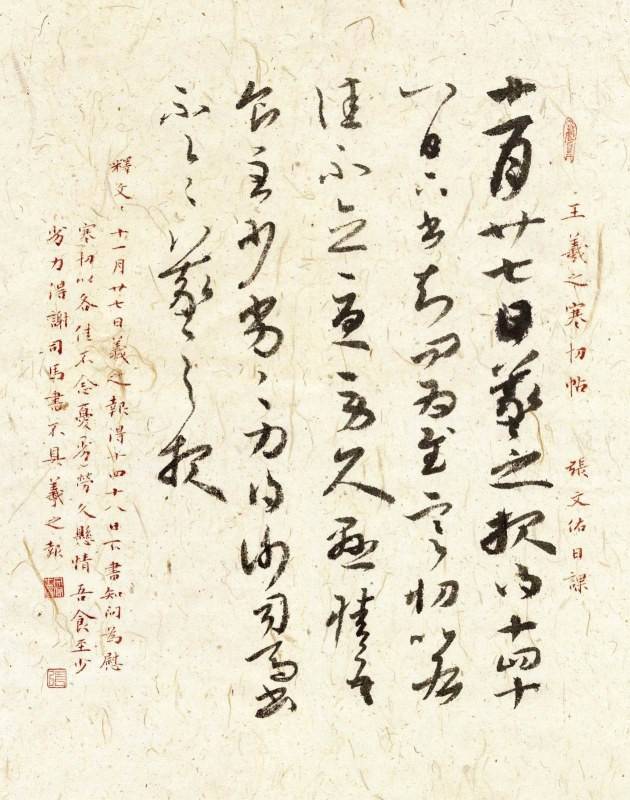 王羲之寒切帖 張文佑日課
十一月廿七日羲之報得十四十
八日二書知問為慰寒切比各
佳不念憂勞久懸情吾
食至少劣劣力得謝司馬書
不具羲之報
釋文、十一月廿七日羲之報得十四十八日二書知問為慰
寒切比各佳不念憂勞久懸情吾食至少
劣力得謝司馬書不具羲之報
張